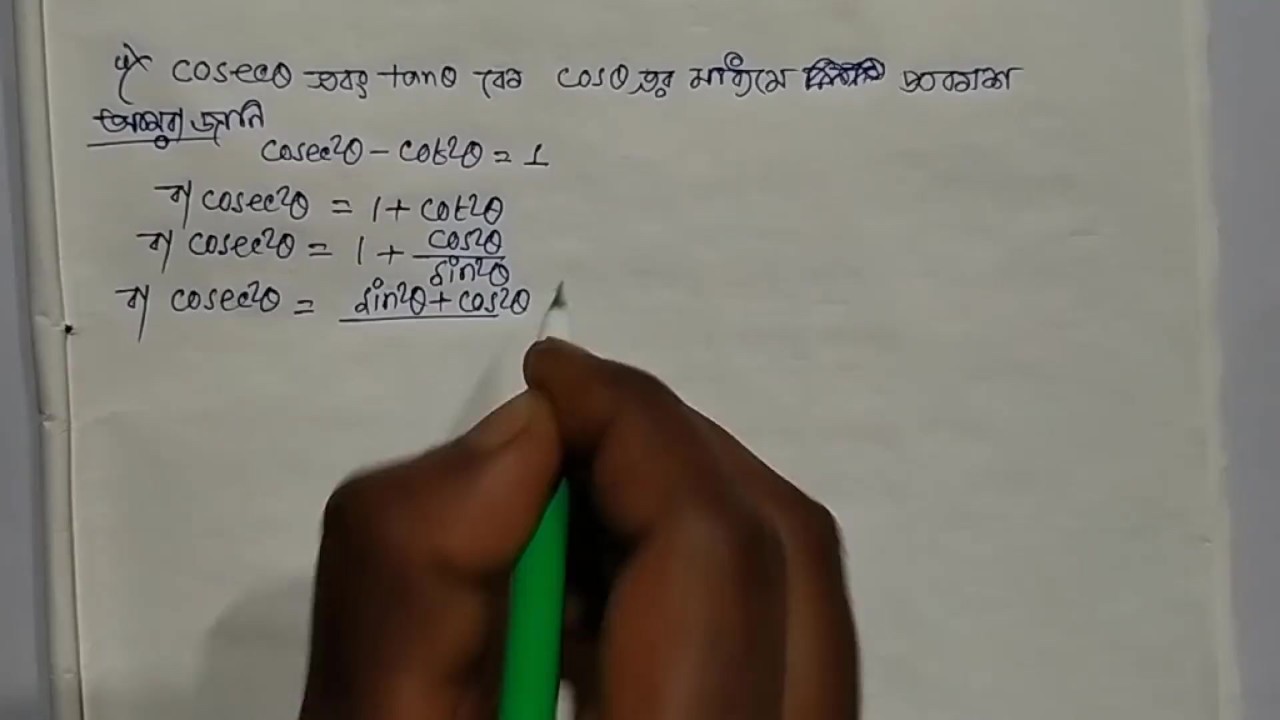 cosecθ এবং tanθ কে cosθ এর মাধ্যমে প্রকাশ
আমরা জানি
cosec²θ - cot²θ = 1
বা cosec²θ = 1 + cot²θ
বা cosec²θ = 1 + cos²θ/sin²θ
বা cosec²θ = sin²θ + cos²θ